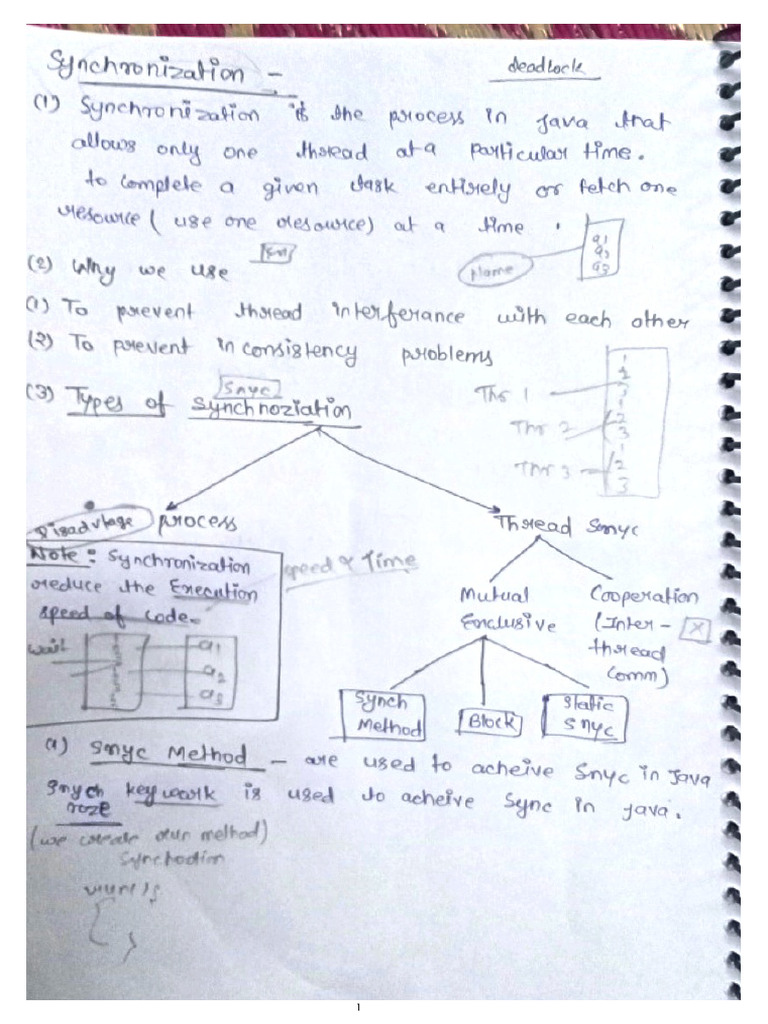 Synchronization -
deadlock
(1) Synchronization is the process in Java that
allows only one thread at a particular time.
to complete a given task entirely or fetch one
resource ( use one resource) at a time .
(2) Why we use
Name
a1
a2
a3
(1) To prevent thread interferance with each other
(2) To prevent inconsistency problems
(3) Types of Synchnoziation
Snyc
Thr 1
Thr 2
Thr 3
1
2
3
1
2
3
1
2
3
Disadvtage
process
Thread Snyc
Note : Synchronization
reduce the Execution
speed of code.
speed & Time
wait
a1
a2
a3
Mutual
Exclusive
Cooperation
(Inter-
thread
Comm)
X
Synch
Method
Block
Static
Snyc
(a) Snyc Method - are used to acheive Snyc in Java
Snych keywork is used to acheive Sync in java.
roze
(we create our method)
{
}
1